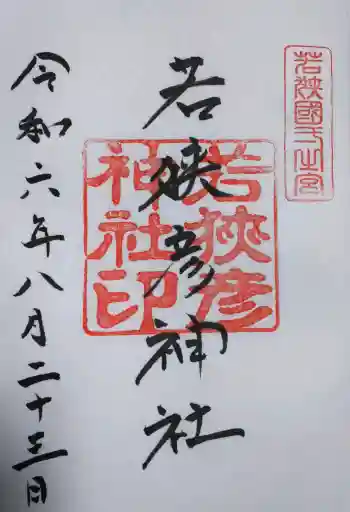 若狹國一之宮
若狹彦神社
若狹彦
神社印
令和六年八月二十三日